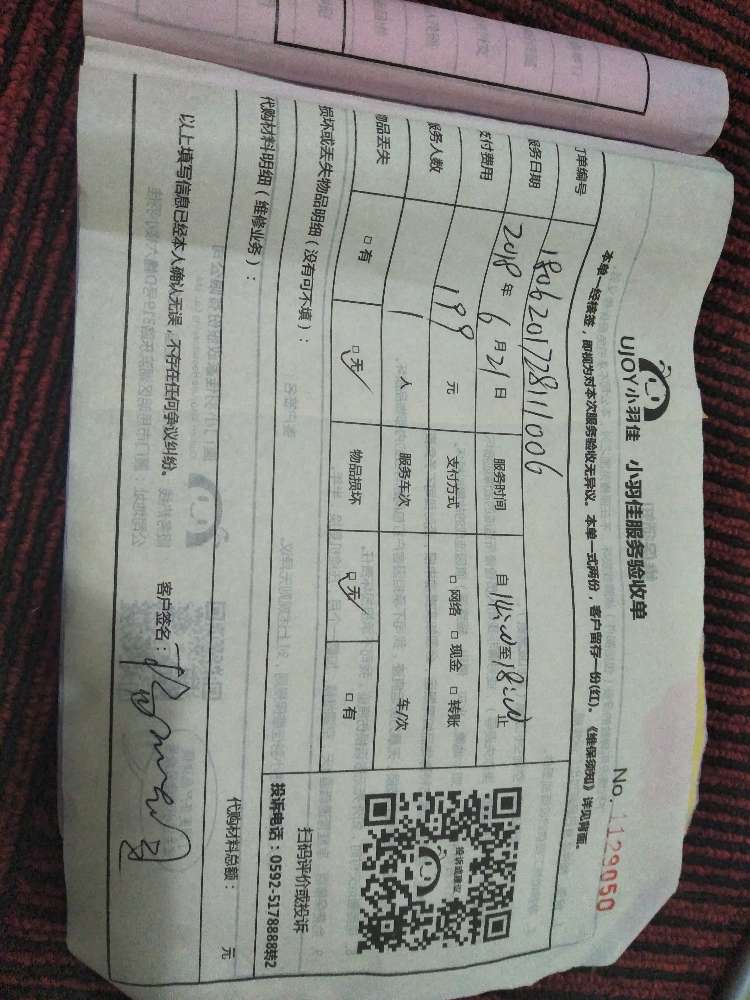 UJOY小羽佳 小羽佳服务验收单
No. 1129050
本单一经核签，即视为对本次服务验收无异议。本单一式两份，客户留存一份(红)。《维保须知》详见背面。
订单编号 180620172811006
服务日期 2018年6月21日 服务时间 自14:00至18:00止
支付费用 199元 支付方式 □网络 □现金 □转账
服务人数 1人 服务车次 车/次
物品丢失 □有 □无 物品损坏 □无 □有
投诉或建议
扫码评价或投诉
投诉电话：0592-5178888转2
损坏或丢失物品明细（没有可不填）：
代购材料明细（维修业务）：
代购材料总额： 元
以上填写信息已经本人确认无误，不存在任何争议纠纷。 客户签名：